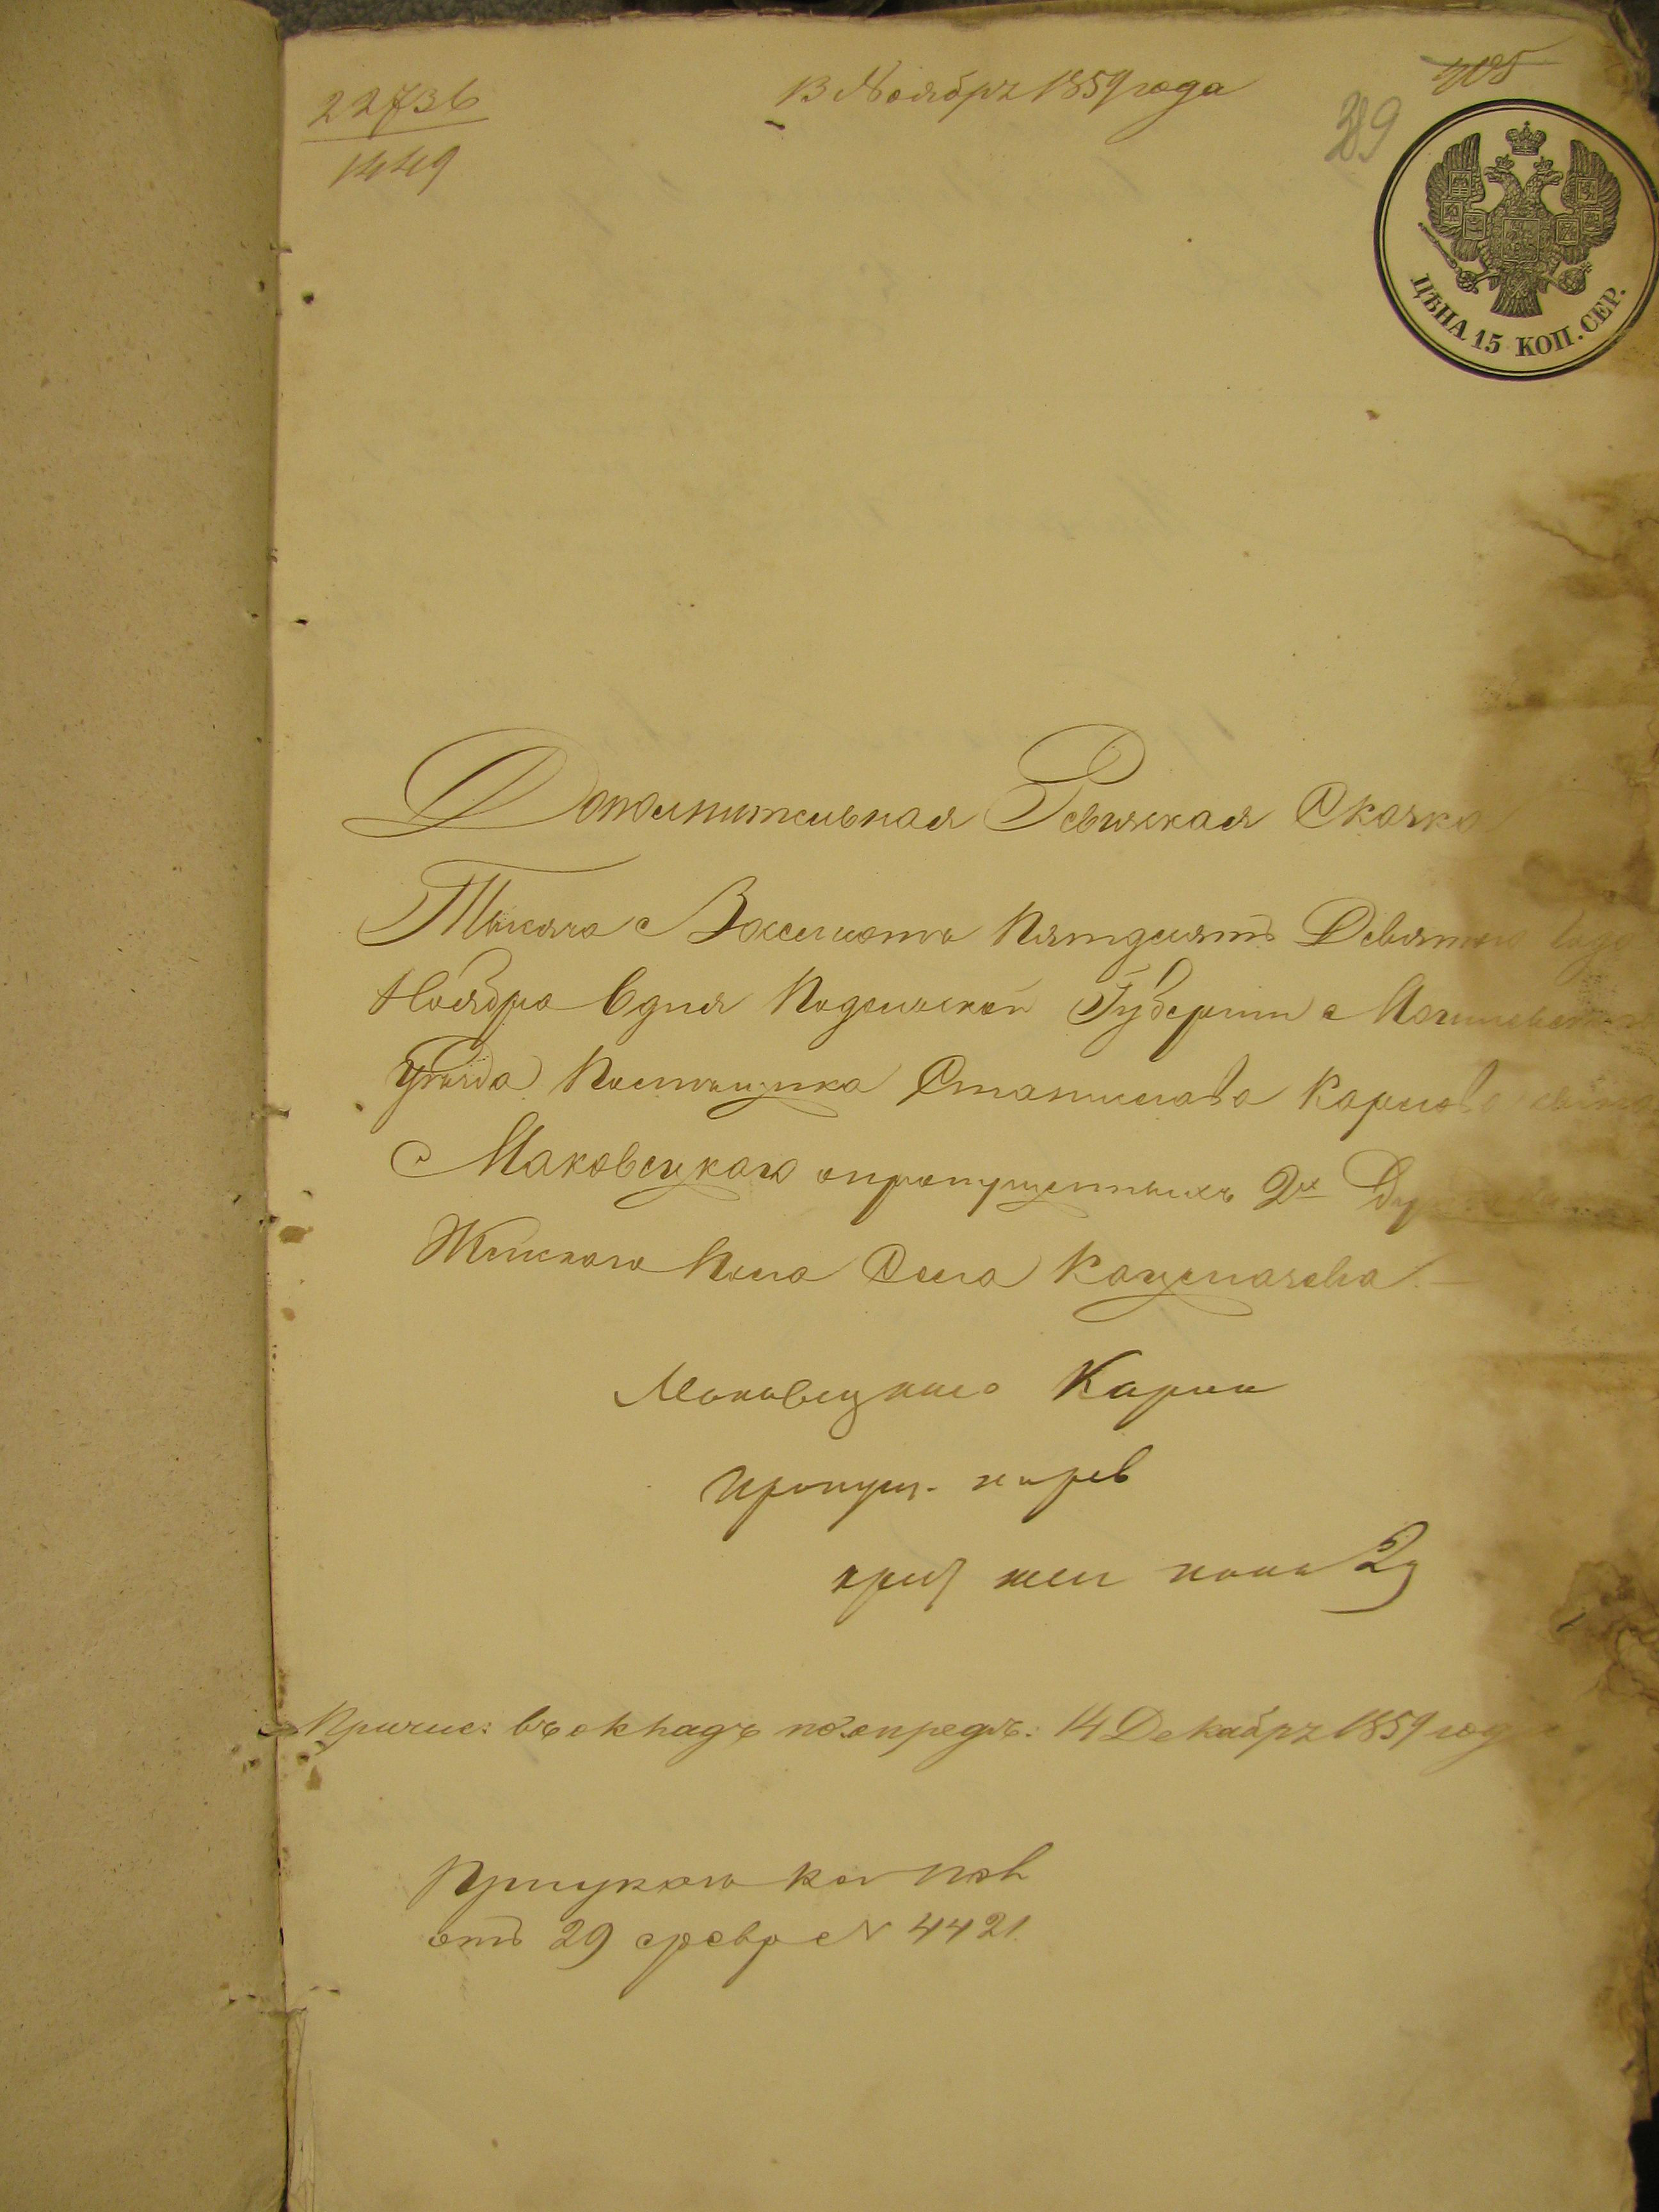 22736
1449
13 Ноября 1859 года
305
389
ЦѢНА 15 КОП. СЕР.
Дополнительная Ревизская Сказка
Тысяча Восемьсотъ Пятдесятъ Девятого Года
Ноября 6 дня Подольской Губерніи Могилевскаго
уѣзда Помѣщика Станислава Карлова сына
Маковецкаго опропущенныхъ 2хъ Душахъ
Женскаго Пола Села Кацмазова.
Маковецкаго Карла
пропущ. по рев
жен пола 2 д
Причис: въ окладъ по опредѣ: 14 Декабря 1859 года
отъ 29 февр N 4421